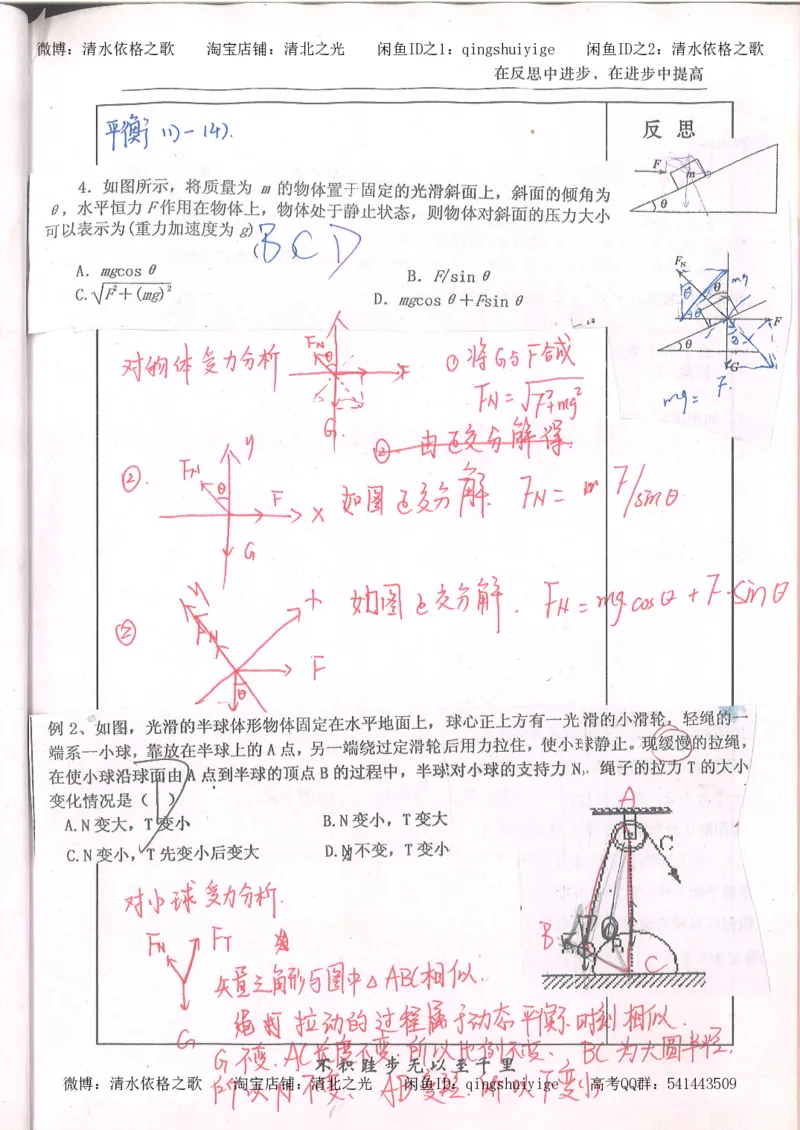 微博：清水依格之歌 淘宝店铺：清北之光 闲鱼ID之1：qingshuiyige 闲鱼ID之2：清水依格之歌
在反思中进步，在进步中提高
平衡 (1)-(4).
反 思
4．如图所示，将质量为 m 的物体置于固定的光滑斜面上，斜面的倾角为
θ，水平恒力 F 作用在物体上，物体处于静止状态，则物体对斜面的压力大小
可以表示为(重力加速度为 g) BCD
A．mgcosθ
B．F/sinθ
C.√F²+(mg)²
D．mgcosθ+Fsinθ
F
m
θ
F_N
mg
θ
F
θ
G
mg= F.
对物体受力分析
F_N
θ
F
G.
①将G与F合成
F_N=√F²+mg²
②由正交分解得:
②.
F_N
y
θ
F
x
G
如图正交分解. F_N= F/sinθ
③
y
F_N
F
θ
如图正交分解. F_N=mg cosθ+F·sinθ
例 2、如图，光滑的半球体形物体固定在水平地面上，球心正上方有一光滑的小滑轮，轻绳的一
端系一小球，靠放在半球上的 A 点，另一端绕过定滑轮后用力拉住，使小球静止。现缓慢的拉绳，
在使小球沿球面由 A 点到半球的顶点 B 的过程中，半球对小球的支持力 N，绳子的拉力 T 的大小
变化情况是（ D ）
A.N 变大，T 变小
B.N 变小，T 变大
C.N 变小，T 先变小后变大
D.N 不变，T 变小
A
C
B
C
对小球受力分析.
F_N
F_T
G
矢量三角形与图中△ABC相似.
拉动的过程属于动态平衡.时刻相似.
G不变.AC长度不变.所以比例不变. BC为大圆半径,
不 积 跬 步 无 以 至 千 里
所以N不变. AB变短.所以F变小
微博：清水依格之歌 淘宝店铺：清北之光 闲鱼ID：qingshuiyige 高考QQ群：541443509